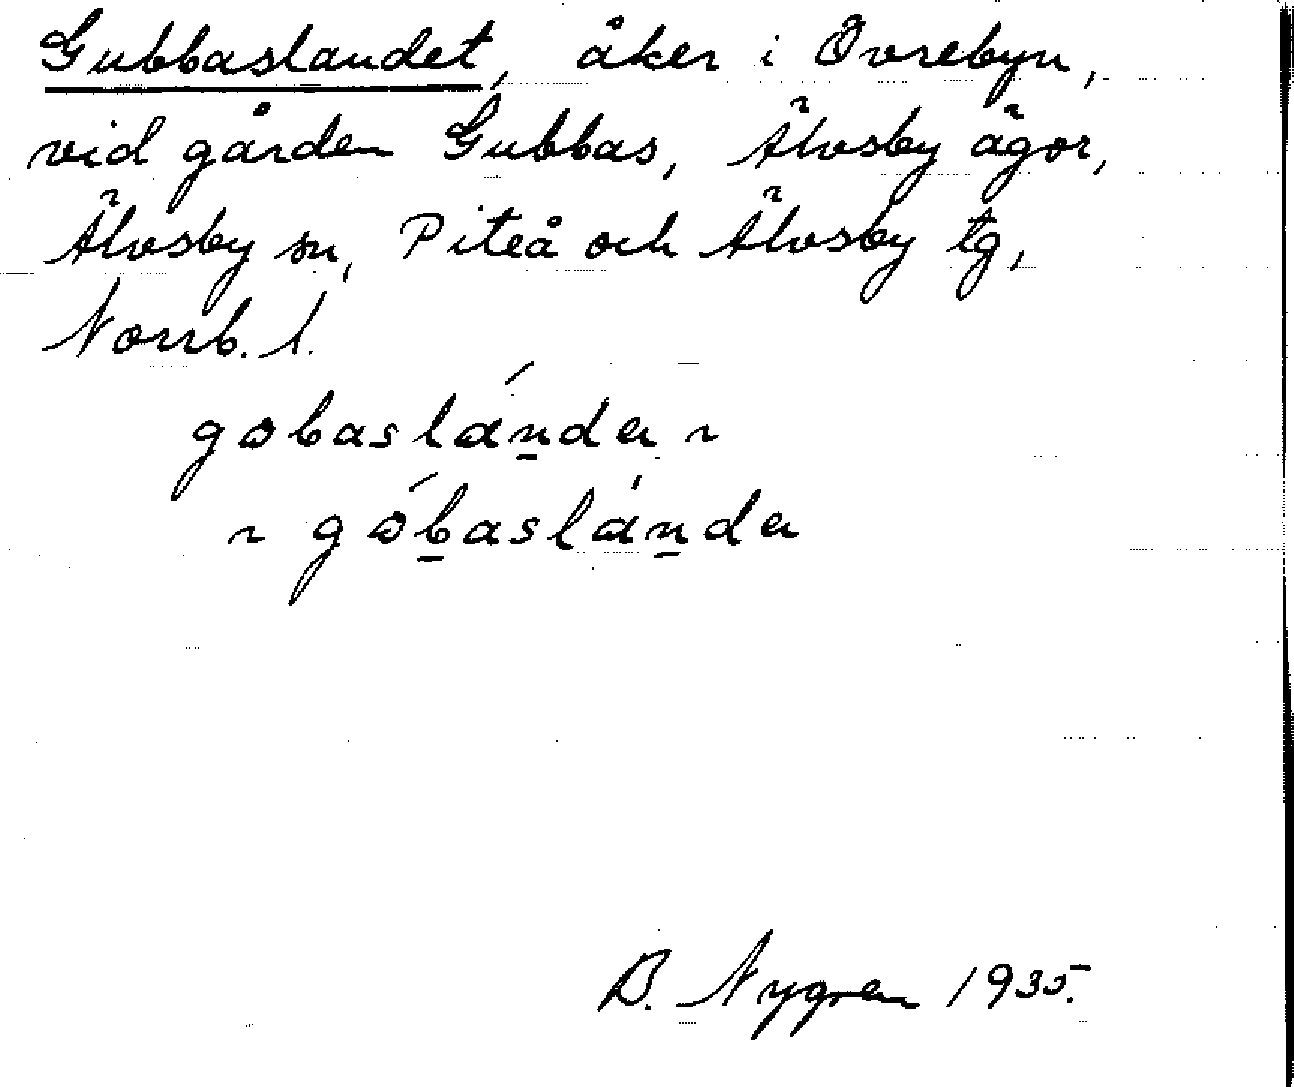 Gubbaslandet, åker i Övrebyn,
vid gården Gubbas, Älvsby ägor,
Älvsby sn, Piteå och Älvsby tg,
Norrb. l.
gobaslánda ~
~ góbaslànda
B. Nygren 1935.